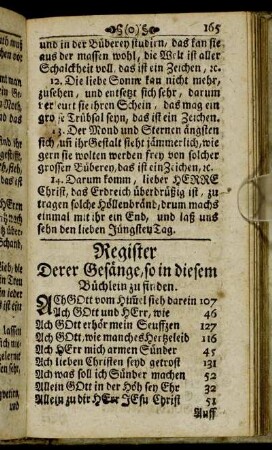 (o) 165
und in der Büberey studirn, das kan sie
aus der massen wohl, die Welt ist aller
Schalckheit voll, das ist ein Zeichen, ꝛc.
12. Die liebe Sonne kan nicht mehr,
zusehen, und entsetzt sich sehr, darum
verleurt sie ihren Schein, das mag ein
große Trübsal seyn, das ist ein Zeichen.
13. Der Mond und Sternen ängsten
sich, uñ ihr Gestalt sieht jämmerlich, wie
gern sie wolten werden frey von solcher
grossen Büberey, das ist ein Zeichen, ꝛc.
14. Darum komm, lieber HERRE
Christ, das Erdreich überdrüßig ist, zu
tragen solche Höllenbränd, drum machs
einmal mit ihr ein End, und laß uns
sehn den lieben Jüngsten Tag.
Register
Derer Gesänge, so in diesem
Büchlein zu finden.
ACh GOtt vom Him̃el sieh darein 107
Ach GOtt und HErr, wie 46
Ach GOtt erhör mein Seuffzen 127
Ach GOtt, wie manches Hertzeleid 116
Ach HErr mich armen Sünder 45
Ach lieben Christen seyd getrost 131
Ach was soll ich Sünder machen 52
Allein GOtt in der Höh sey Ehr 32
Allein zu dir HErr JEsu Christ 51
Auff